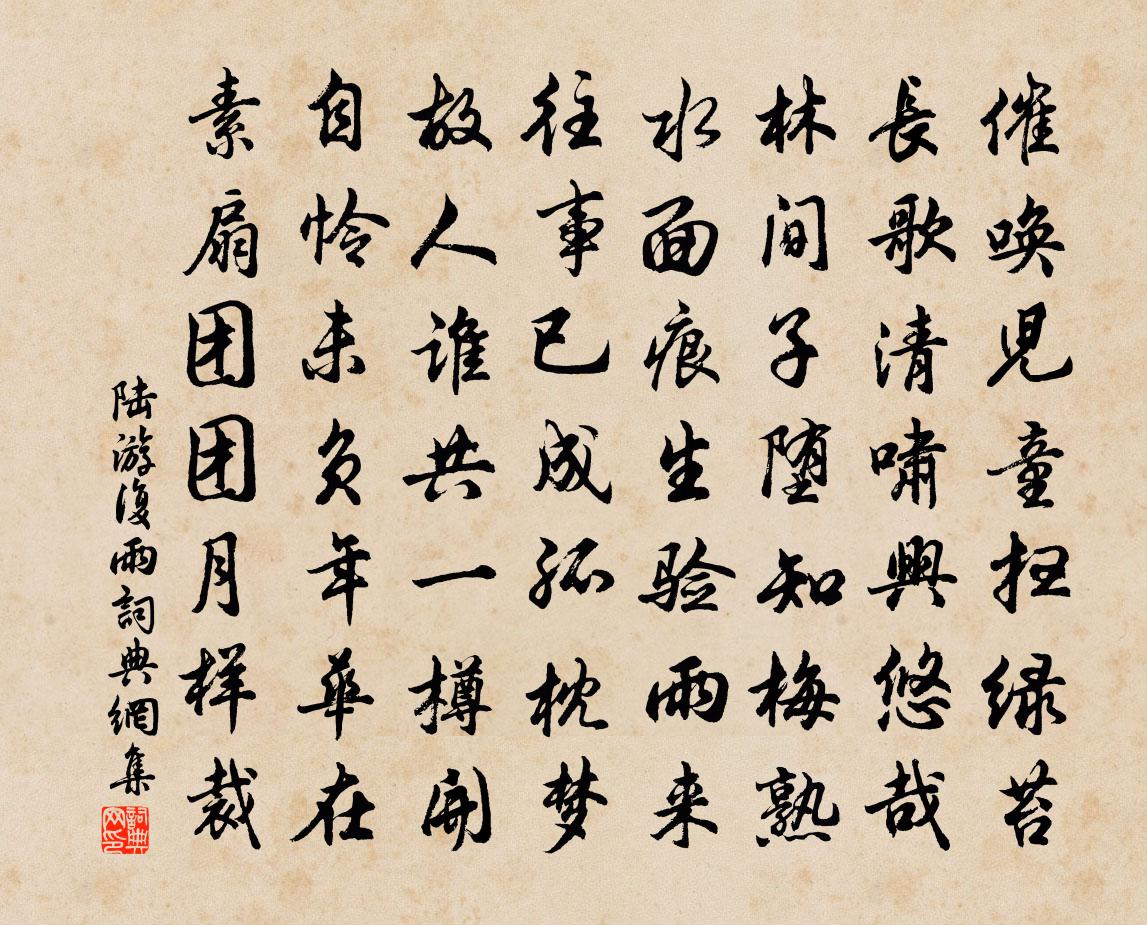 催唤児童扫绿苔
長歌清嘯興悠哉
林间子堕知梅熟
水面痕生验雨来
往事已成孤枕梦
故人谁共一樽開
自怜未负年華在
素扇团团月样裁
陆游復雨詞典網集
詞典网印